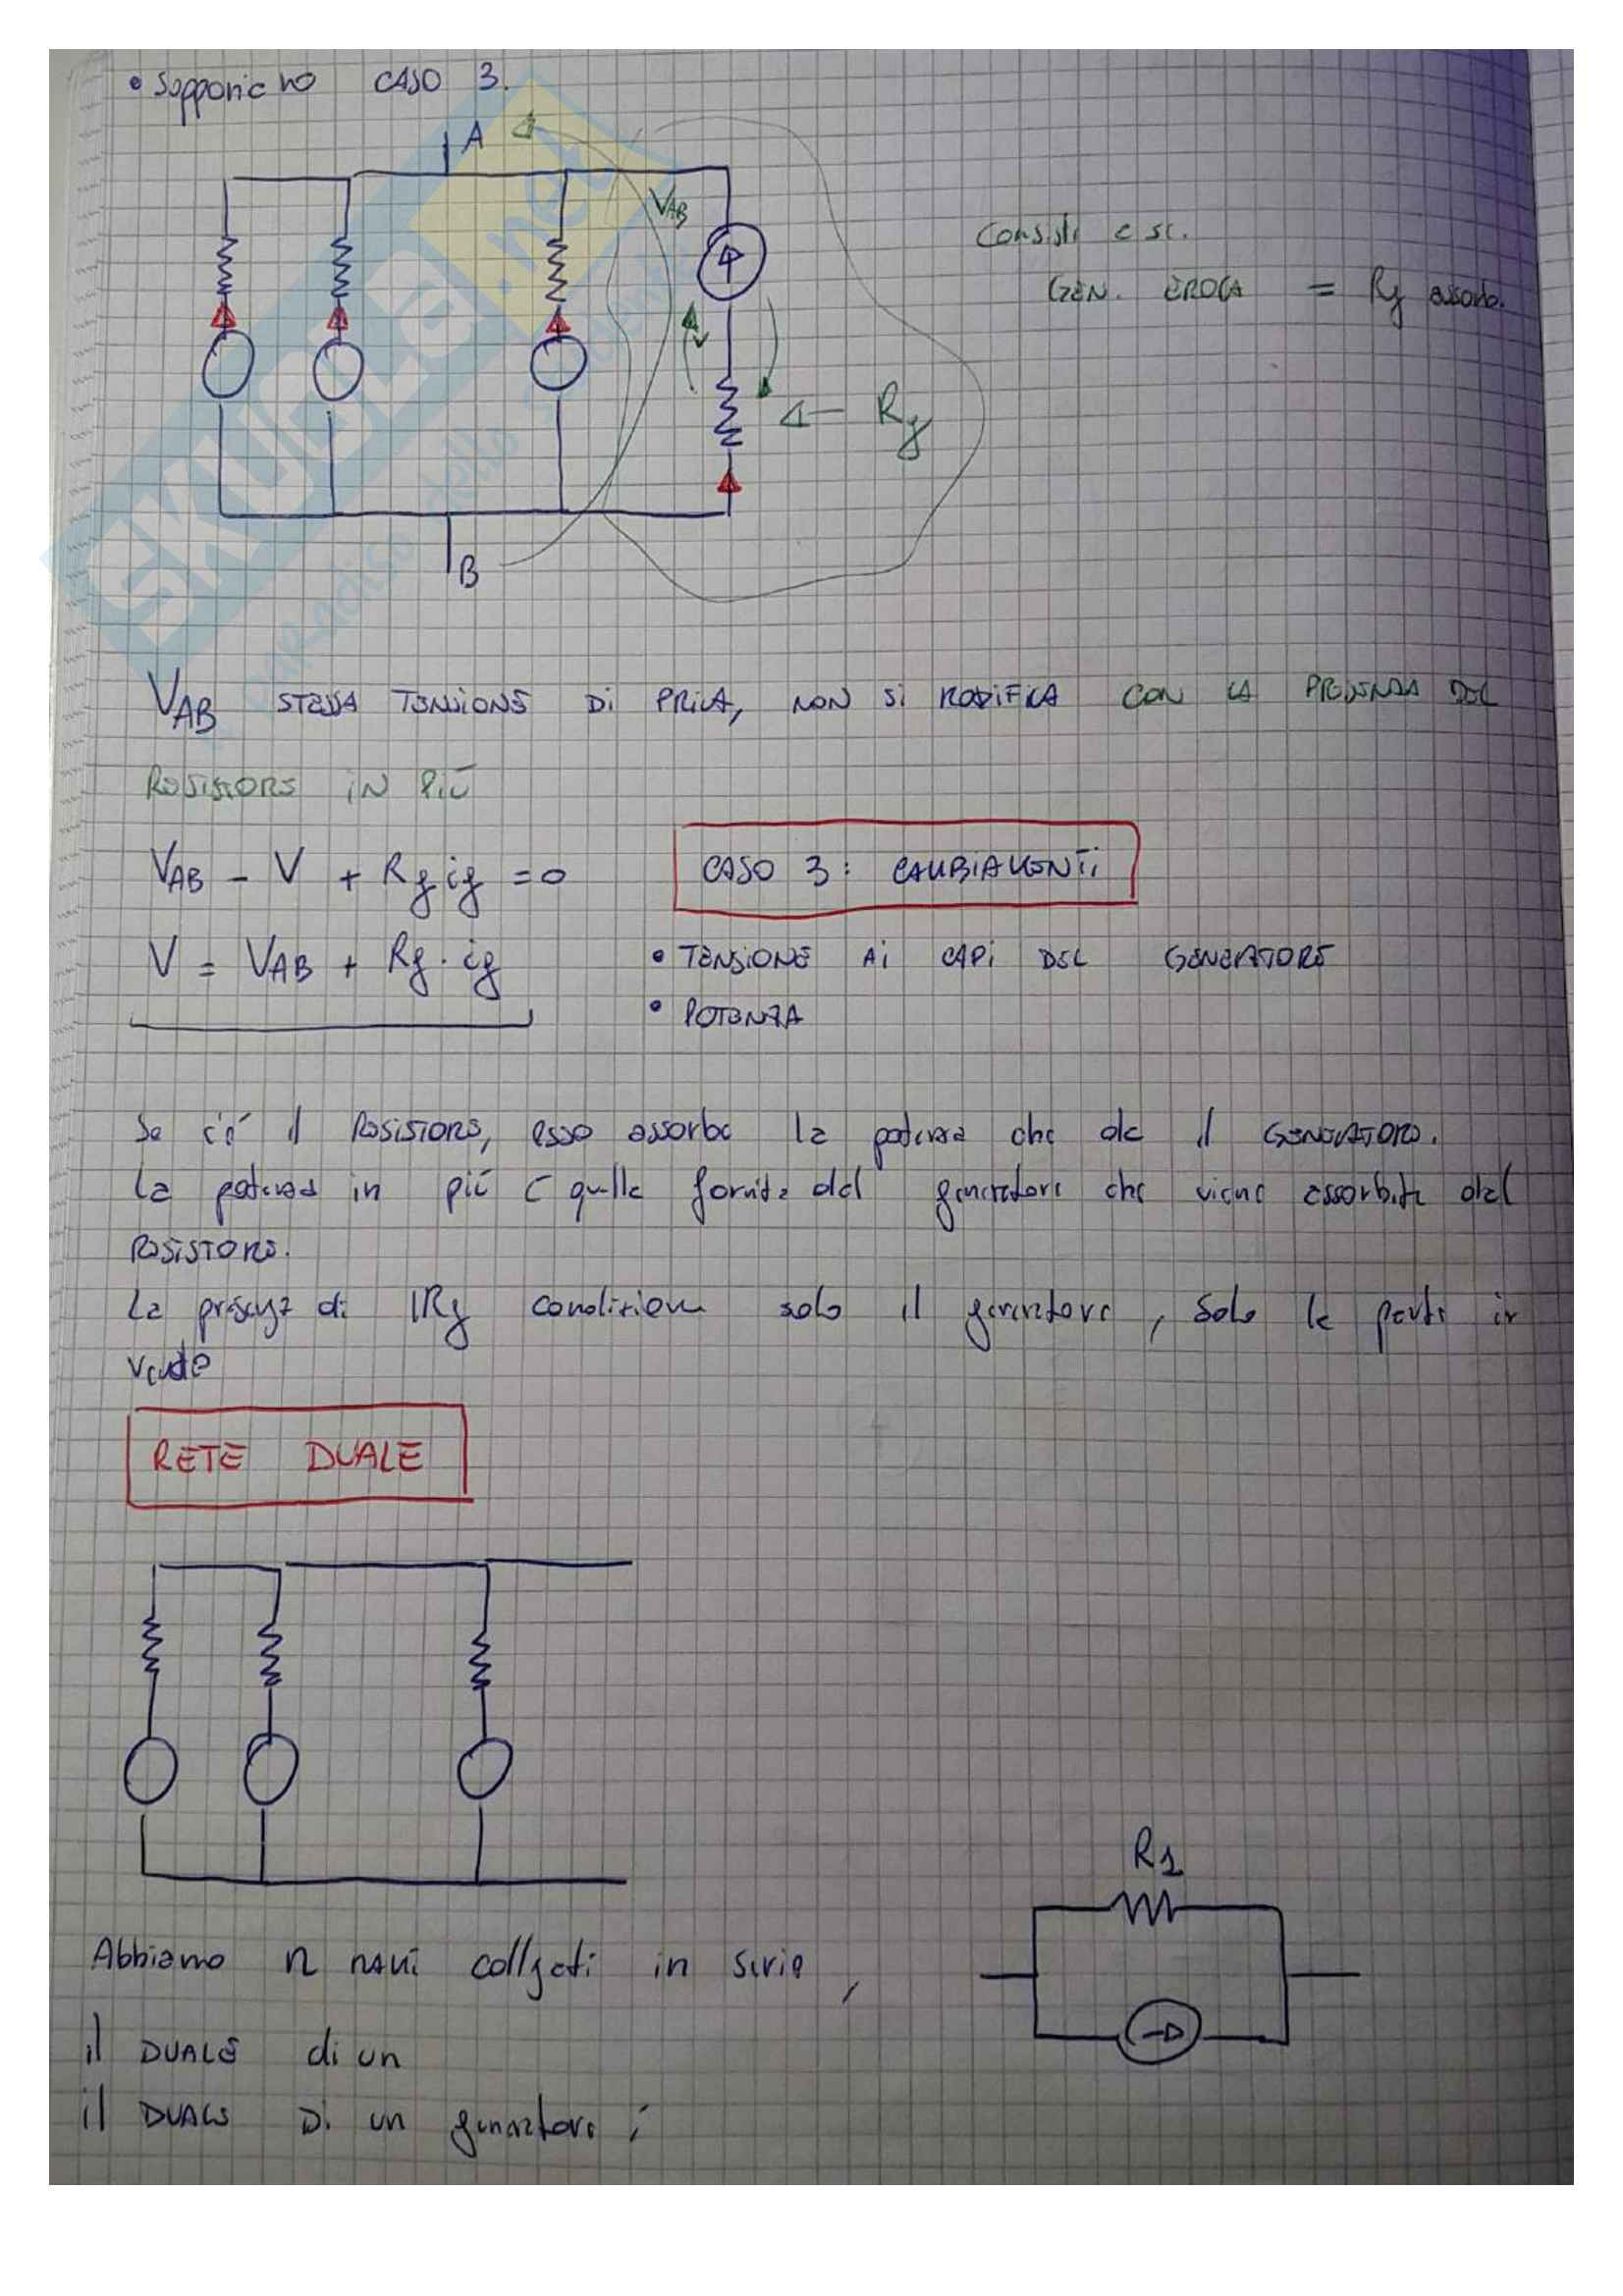 • Sopponiamo CASO 3.
A
VAB
Consid esc.
GEN. EROGA = Rg assorb.
V
Rg
B
SKUOLA.net
VAB STESSA TENSIONE DI PRIMA, NON SI MODIFICA CON LA PRESENZA DEL
RESISTORE IN PIÙ
VAB - V + Rg ig = 0
CASO 3: CAMBIAMENTI
V = VAB + Rg · ig
• TENSIONE AI CAPI DEL GENERATORE
• POTENZA
Se c'é il RESISTORE, esso assorbe la potenza che dà il GENERATORE.
La potenza in più è quella fornita dal generatore che viene assorbita dal
RESISTORE.
La presenza di Rg condiziona solo il generatore, solo la parte in
verde
RETE DUALE
R1
Abbiamo n rami collegati in serie,
il DUALE di un
il DUALE DI un generatore i